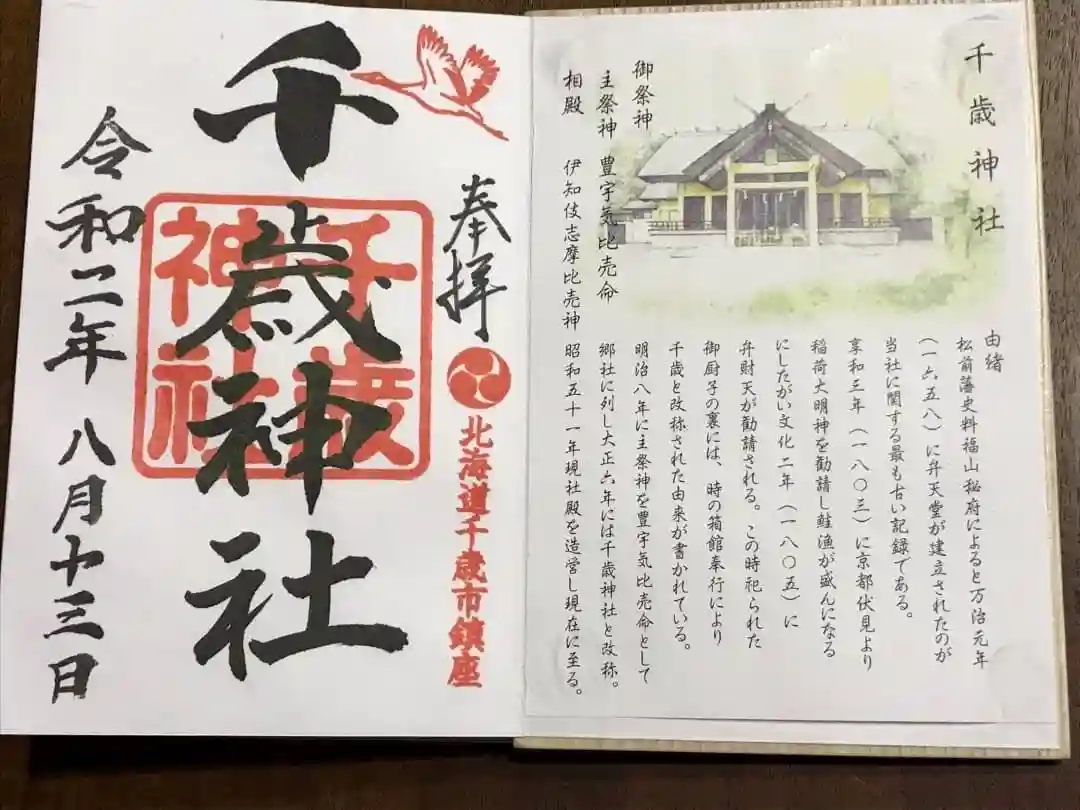 千歳神社
御祭神
主祭神 豊宇気比売命
相殿 伊知伎志摩比売神
由緒
松前藩史料福山秘府によると万治元年
(一六五八)に弁天堂が建立されたのが
当社に関する最も古い記録である。
享和三年(一八〇三)に京都伏見より
稲荷大明神を勧請し鮭漁が盛んになる
にしたがい文化二年(一八〇五)に
弁財天が勧請される。この時祀られた
御厨子の裏には、時の箱館奉行により
千歳と改称された由来が書かれている。
明治八年に主祭神を豊宇気比売命として
郷社に列し大正六年には千歳神社と改称。
昭和五十一年現社殿を造営し現在に至る。
奉拝
北海道千歳市鎮座
千歳神社
千歳
神社
令和二年 八月十三日